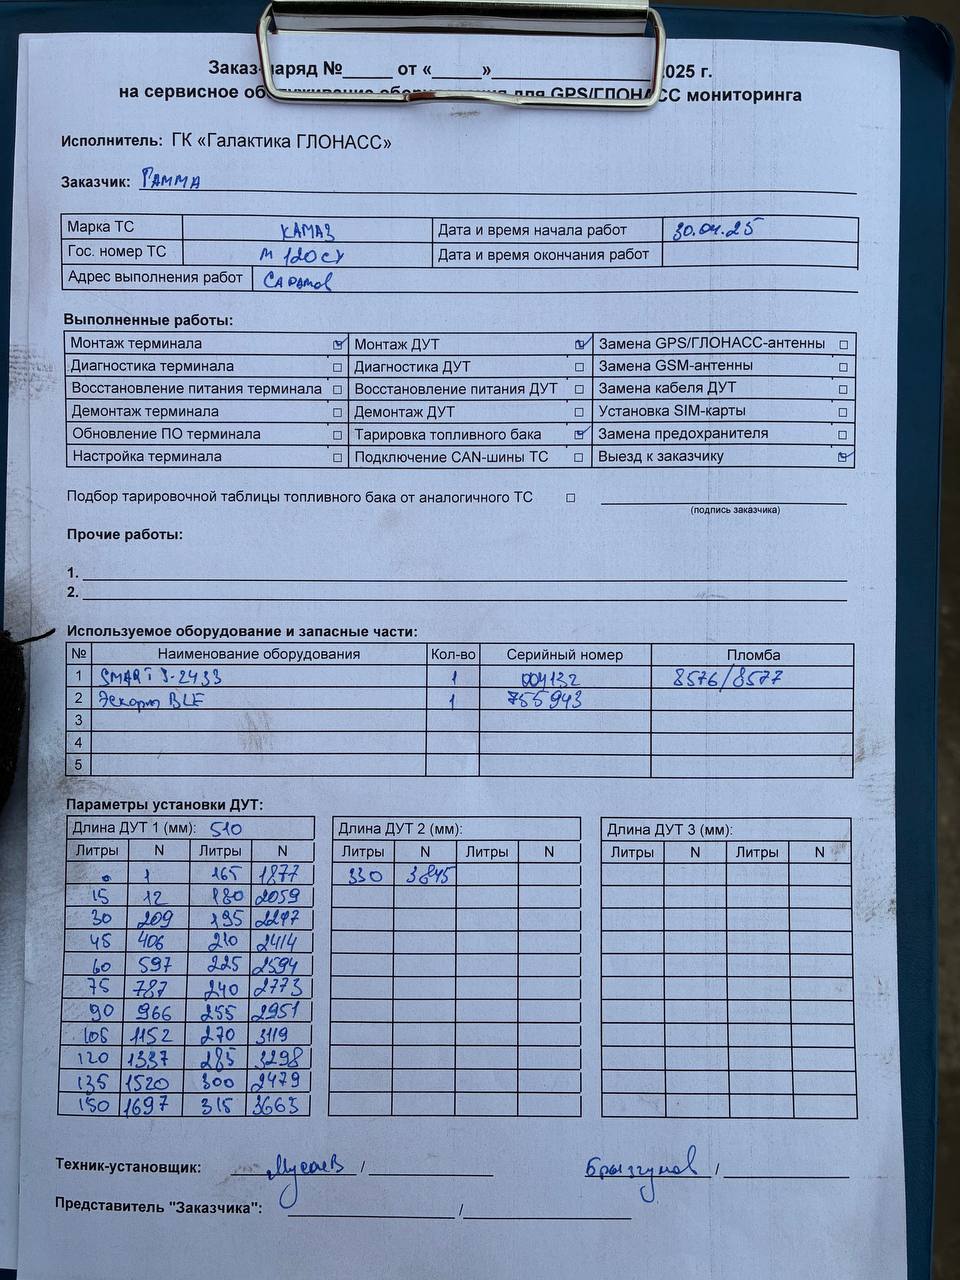 Заказ-наряд №_____ от «_____»________________ 2025 г.
на сервисное обслуживание оборудования для GPS/ГЛОНАСС мониторинга
Исполнитель: ГК «Галактика ГЛОНАСС»
Заказчик: ГАММА
Марка ТС КАМАЗ Дата и время начала работ 30.04.25
Гос. номер ТС М 120 СУ Дата и время окончания работ
Адрес выполнения работ Саратов
Выполненные работы:
Монтаж терминала ☑ Монтаж ДУТ ☑ Замена GPS/ГЛОНАСС-антенны ☐
Диагностика терминала ☐ Диагностика ДУТ ☐ Замена GSM-антенны ☐
Восстановление питания терминала ☐ Восстановление питания ДУТ ☐ Замена кабеля ДУТ ☐
Демонтаж терминала ☐ Демонтаж ДУТ ☐ Установка SIM-карты ☐
Обновление ПО терминала ☐ Тарировка топливного бака ☑ Замена предохранителя ☐
Настройка терминала ☐ Подключение CAN-шины ТС ☐ Выезд к заказчику ☑
Подбор тарировочной таблицы топливного бака от аналогичного ТС ☐
(подпись заказчика)
Прочие работы:
1.
2.
Используемое оборудование и запасные части:
№ Наименование оборудования Кол-во Серийный номер Пломба
1 SMART S-2433 1 004132 8576/8577
2 Эскорт BLE 1 755943
3
4
5
Параметры установки ДУТ:
Длина ДУТ 1 (мм): 510 Длина ДУТ 2 (мм): Длина ДУТ 3 (мм):
Литры N Литры N Литры N Литры N Литры N Литры N
0 1 165 1877 330 3845
15 12 180 2059
30 209 195 2247
45 406 210 2414
60 597 225 2594
75 787 240 2773
90 966 255 2951
105 1152 270 3119
120 1337 285 3298
135 1520 300 3479
150 1697 315 3663
Техник-установщик: Мусаев / Брызгунов /
Представитель "Заказчика": /